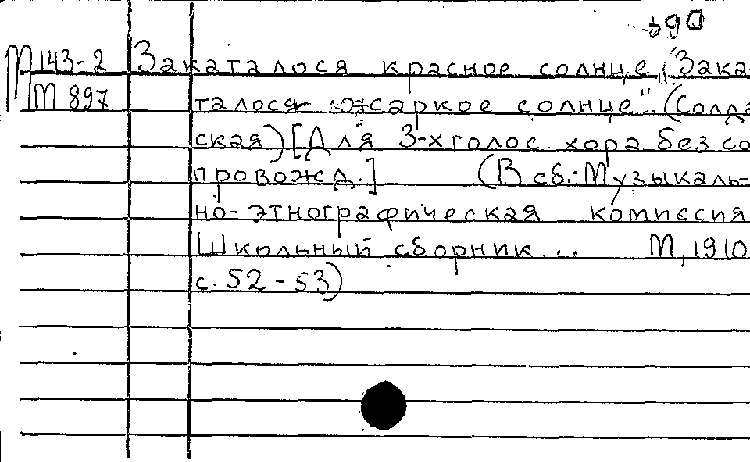 М 143-2 Закаталося красное солнце „Зака-
М 897 талося жаркое солнце". (Солда
ская) [Для 3-х голос хора без со
провожд.] (В сб.: Музыкаль-
но-этнографическая комиссия
Школьный сборник... М, 1910
с. 52-53)